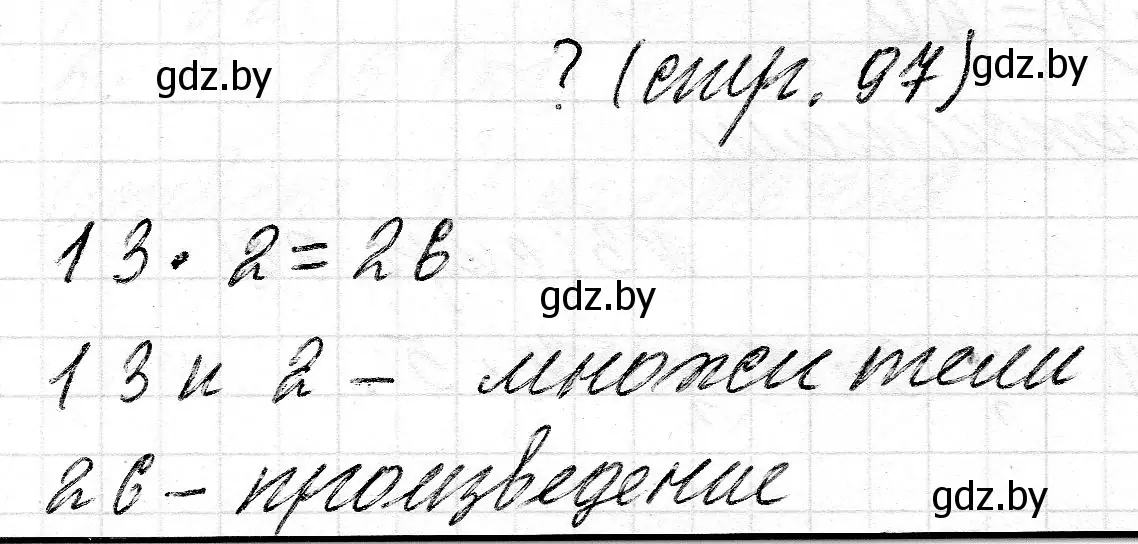 gdz.by ? (стр. 97) gdz.by
13 · 2 = 26
gdz.by
13 и 2 – множители
26 – произведение
gdz.by